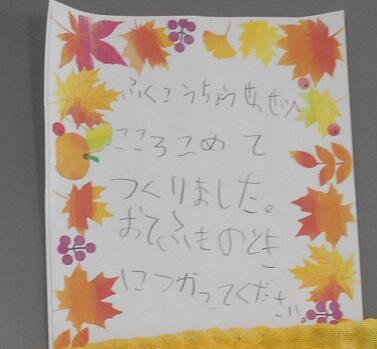 ふくこうちょうせんせいへ
こころこめて
つくりました。
おてふものとき
につかってください